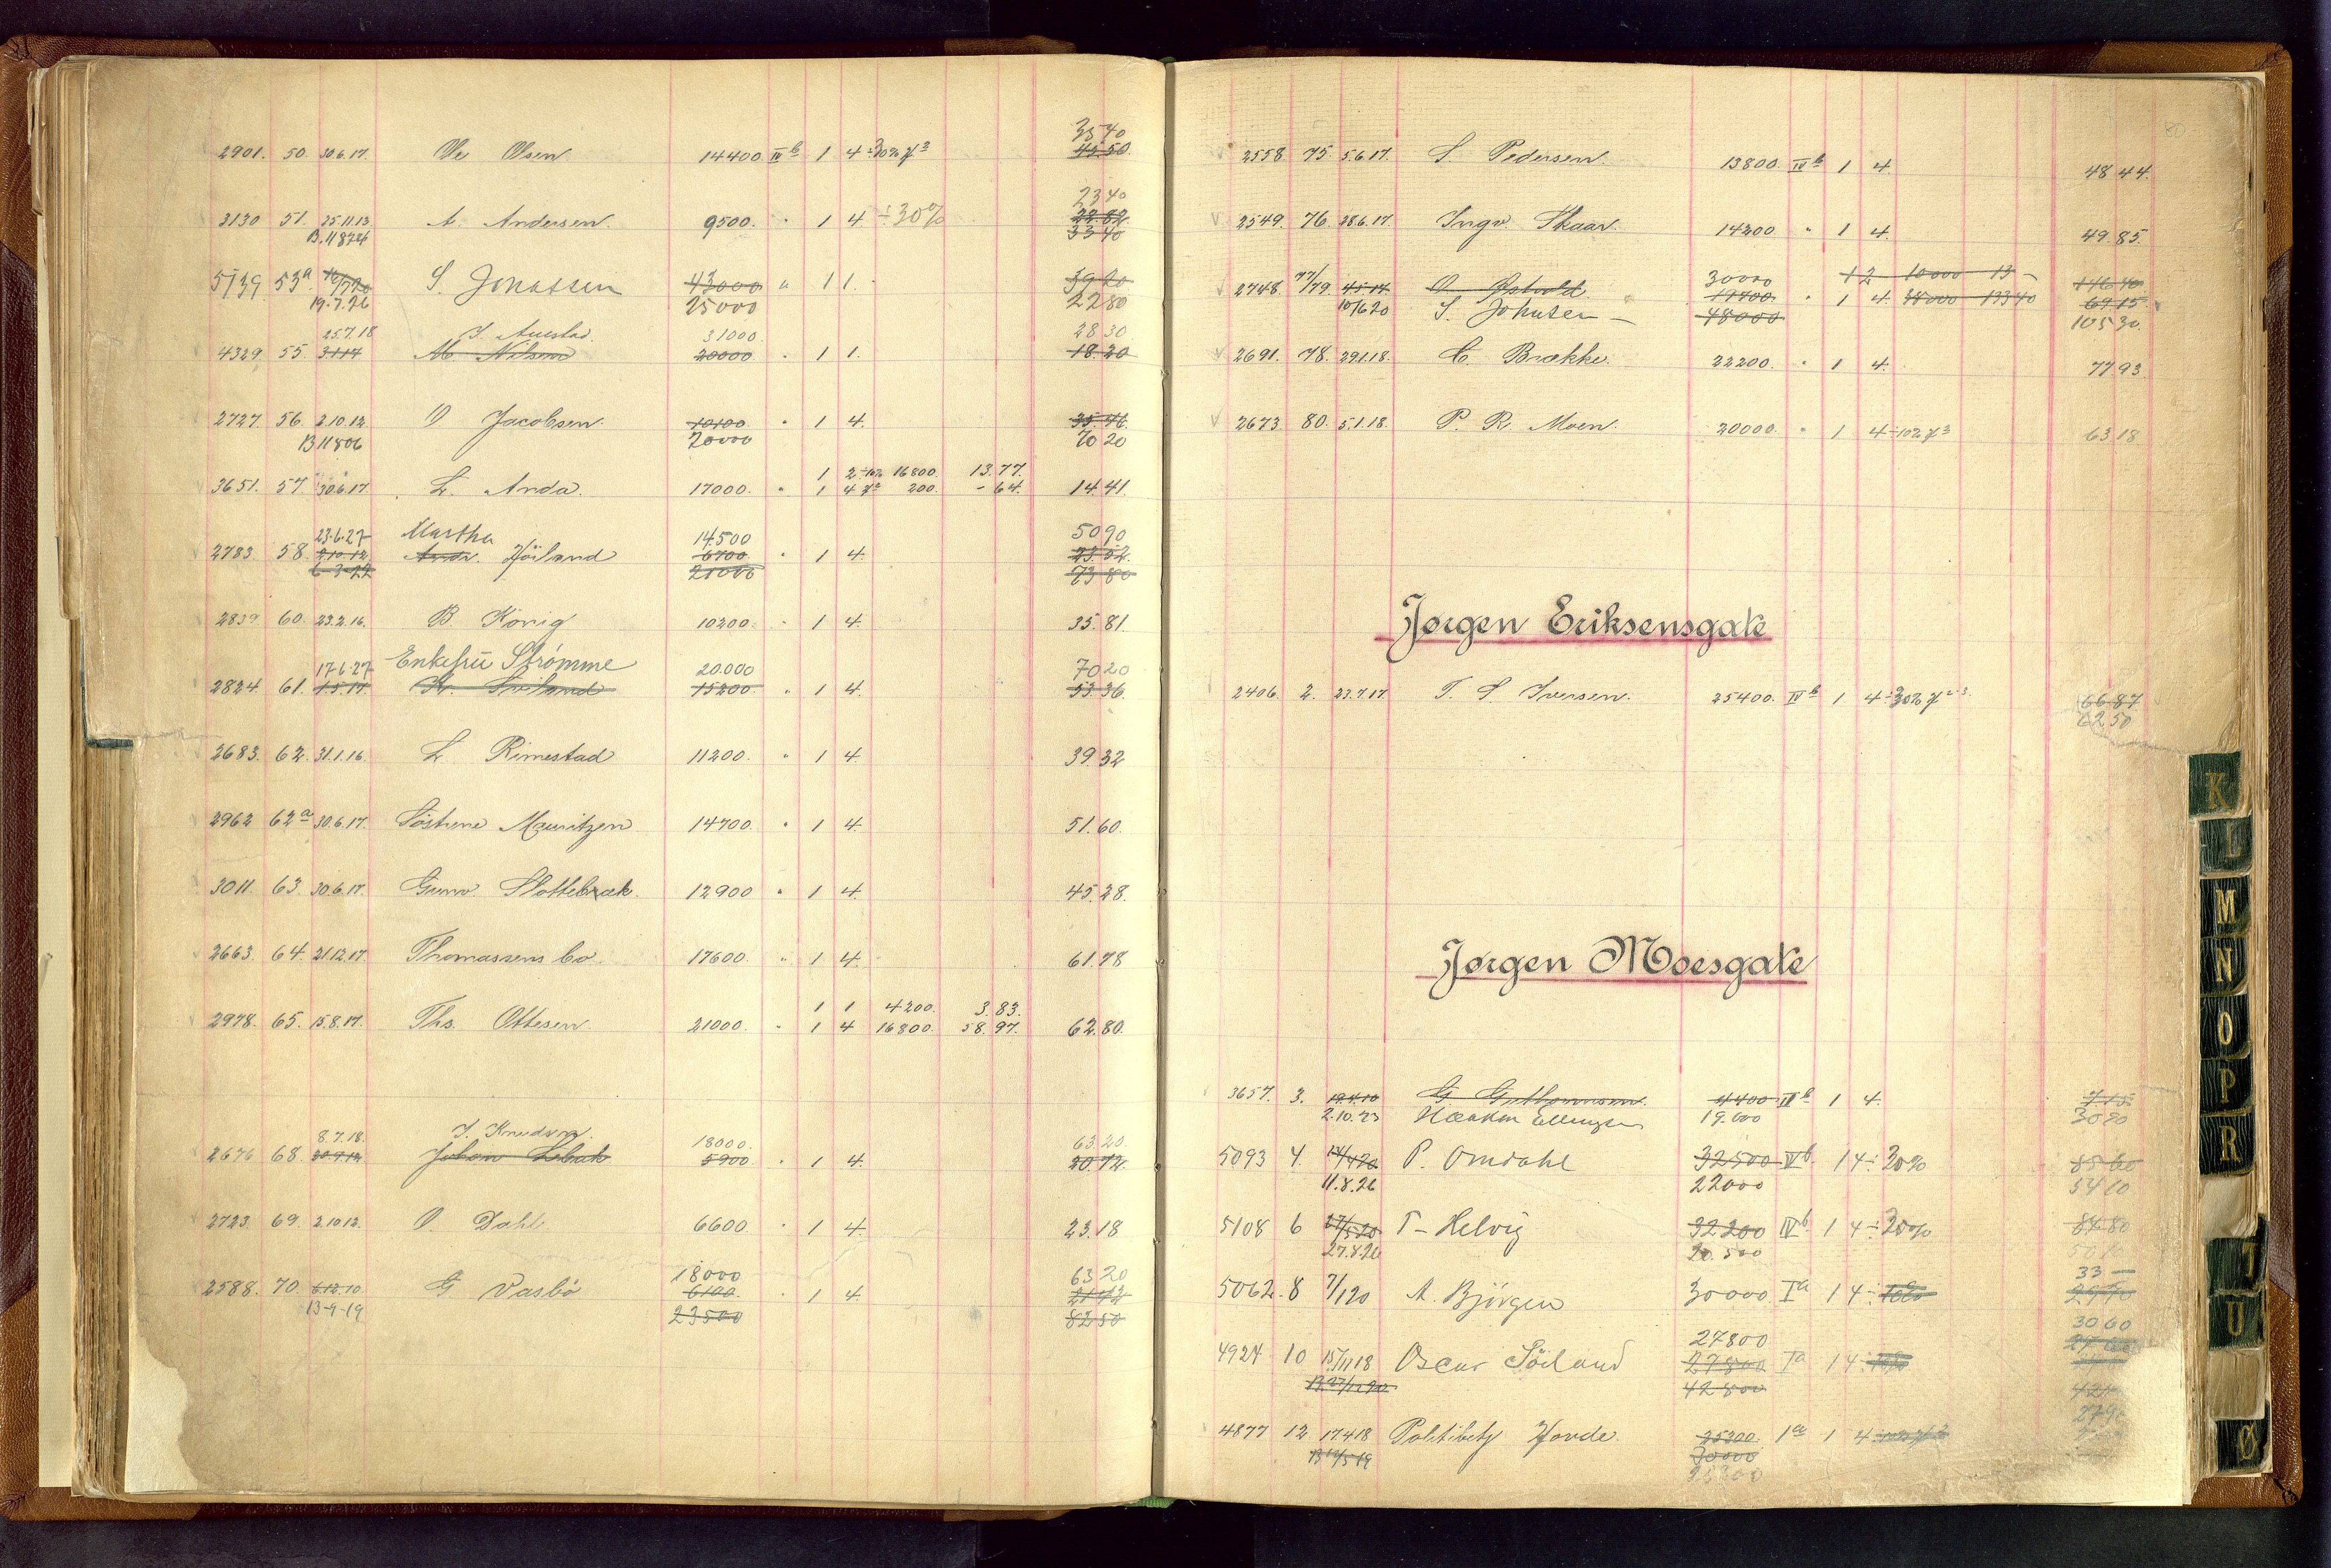 35 40
2901. 50. 30.6.17. Ole Olsen 14400. IV b 1 4 ÷ 30% f 3 45 50.
23 40
3130 51. 25.11.13 A. Andersen. 9500. " 1 4 ÷ 30% 22 82
B. 11874 33 40
5139 53a 19/7 20 S. Jonassen 43000 " 1 1. 39 20
19.7.26 25000 22 80
25.7.18 J. Auestad. 31000. 28 30
4329. 55. 3.1.14 M. Nilsen 20000 " 1 1. 18.20
2727. 56. 2.10.12 O Jacobsen. 10100 " 1 4. 35.46
B 11806 20000 70 20
1 2 ÷ 10% 16800. 13.77.
3651. 57. 30.6.17. L. Anda. 17000. " 1 4 f 2 200. - 64. 14.41.
23.6.27 Martha 14.500 50 90
2783. 58. 2.10.12 Jöiland 6700 " 1 4. 23.52
6-3-22 21000 73 80
2839 60. 23.2.16. B. König 10200. " 1 4. 35.81.
17.6.27 Enkefru Strömme 20.000 70 20
2824. 61. 1.5.17. 15200. " 1 4. 53 36.
2683. 62. 31.1.16. L Rimestad 11200. " 1 4. 39.32
2962 62a 30.6.17. Söstrene Mauritzen 14700. " 1 4. 51.60.
3011. 63. 30.6.17. Gunv. Slottebræk. 12900 " 1 4. 45.28.
2663. 64. 21.12.17. Thomassens bo. 17600. " 1 4. 61.78
1 1 4200. 3.83.
2978. 65. 15.8.17. Ths. Ottesen 21000. " 1 4 16800. 58.97. 62.80.
8.7.18. J. Knudsen. 18000. 63.20
2676 68. 20.9.12 5900 " 1 4. 20.72
2723. 69. 2.10.12. O. Dahl 6600. " 1 4. 23.18
18000 63 20
2588. 70. 6.12.10. G Vasbö 6100. " 1 4. 21 42
13-9-19 23500 82 50
80
2558 75. 5.6.17. S Pedersen. 13800. IV b 1 4. 48 44.
2549. 76. 28.6.17. Ingv. Skaar. 14200 " 1 4. 49.85.
30000 1 2 10000 13 - 146 40
2748. 77/79 4.5.14 O. 19700. " 1 4. 38000 133 40 69 15
10/6 20 S. Johnsen - 48000 105 30.
2691. 78. 29.1.18. C. Brække. 22200. " 1 4. 77 93
2673. 80. 5.1.18. P. R. Moen. 20000. " 1 4 ÷ 10% f 3 63 18
Jørgen Eriksensgate
2406. 2. 23.7.17. T. S. Iversen. 25400. IV b 1 4 ÷ 30% f 2-3. 66 87
62 50
Jørgen Moesgate
3657. 3. 19.4.10 4400 IV b 1 4. 7 15
2.10.23 Haakon Ellingsen 19.000 30 80
5093 4. 14/4 20 P. Omdahl 32500 IV b. 1 4 ÷ 30% 85 60
11.8.26 22000 54 10
5108 6 27/5 20 T - Helvig 32200 IV b. 1 4 ÷ 20% 84 80
27.8.26 20.500 50
33 -
5062. 8 7/1 20 A. Björgen 30000 I a 1 4 ÷ 10% 29 70
27800 30 60
4924 10 15/11 18 Oscar Söiland 27800 I a 1 4 ÷ 10% 27 60
42800
4877 12 17.4.18 Politibetj Hovde. 25200. I a 1 4
30000
25200
K
L
M
N
O
P
R
T
U
Ø